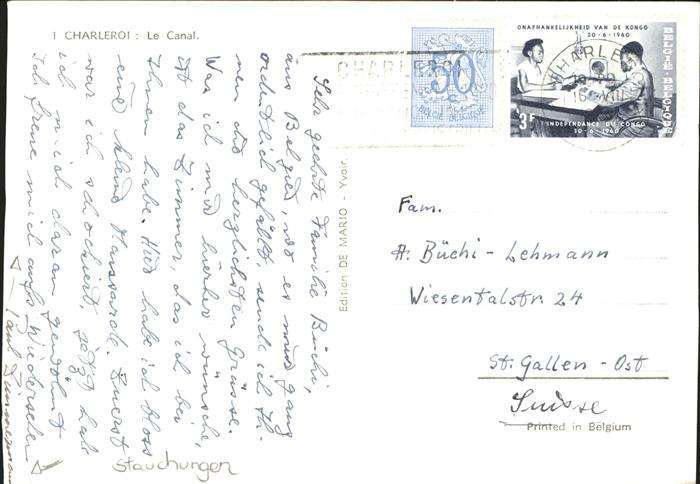 1 CHARLEROI : Le Canal.
Sehr geehrte Familie Büchi,
aus Belgien, wo es mir ganz
ordentlich gefällt, sende ich Ih-
nen die herzlichsten Grüsse.
Was ich mir hierher wünsche,
ist das Zimmer, das ich bei
Ihnen habe. Hier habe ich bloss
eine kleine Mansarde. Zuerst
war ich schockiert, jetzt hab
ich mich daran gewöhnt
Ich freue mich aufs Wiedersehen
Paul
Stauchungen
Edition DE MARIO - Yvoir.
CHARLEROI
50
BELGIË-BELGIQUE
ONAFHANKELIJKHEID VAN DE KONGO
30-6-1960
BELGIË-BELGIQUE
3F
INDEPENDANCE DU CONGO
30-6-1960
CHARLEROI
Fam.
A. Büchi-Lehmann
Wiesentalstr 24
St. Gallen-Ost
Suisse
Printed in Belgium